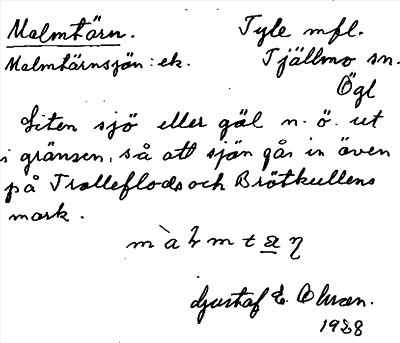 Malmtärn. Tyle mfl.
Malmtärnsjön: ek. Tjällmo sn.
Ögl
Liten sjö eller göl n. ö. ut
i gränsen, så att sjön går in även
på Trolleflods och Brötkullens
mark.
Gustaf E. Olsson.
1928